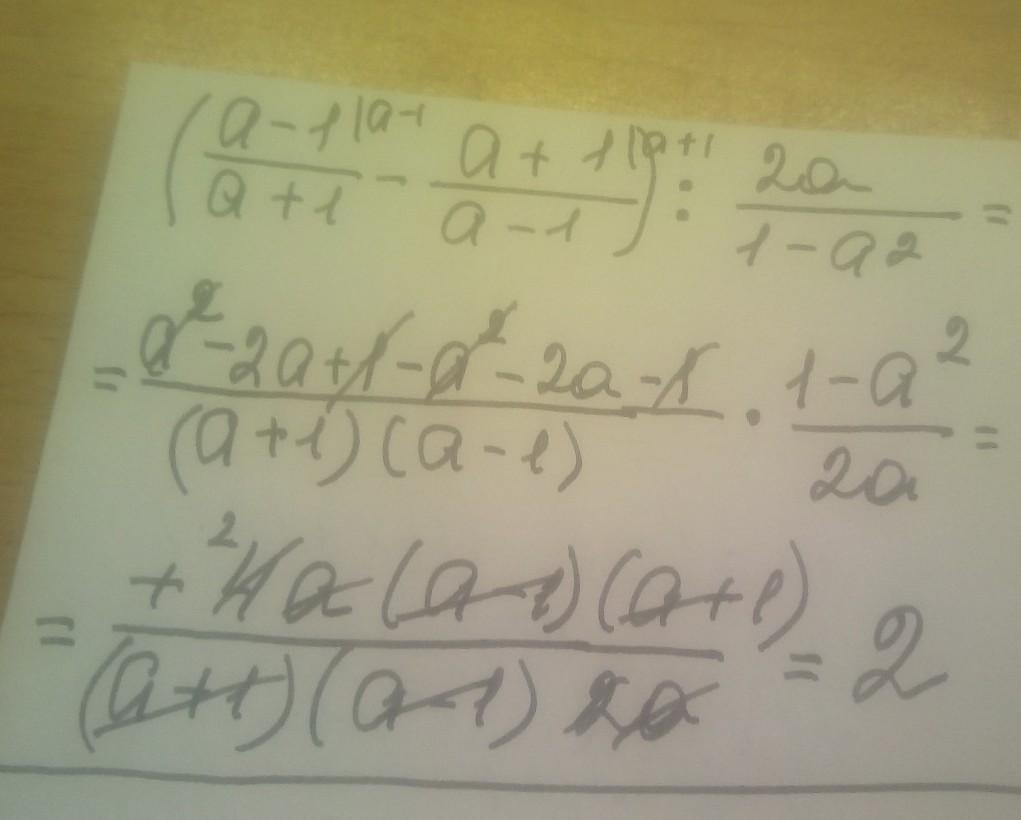 (a-1|a-1 / a+1 - a+1|a+1 / a-1) : 2a / 1-a² =
= a²-2a+1-a²-2a-1 / (a+1)(a-1) · 1-a² / 2a =
= + 4² a (a-1)(a+1) / (a+1)(a-1) 2a = 2